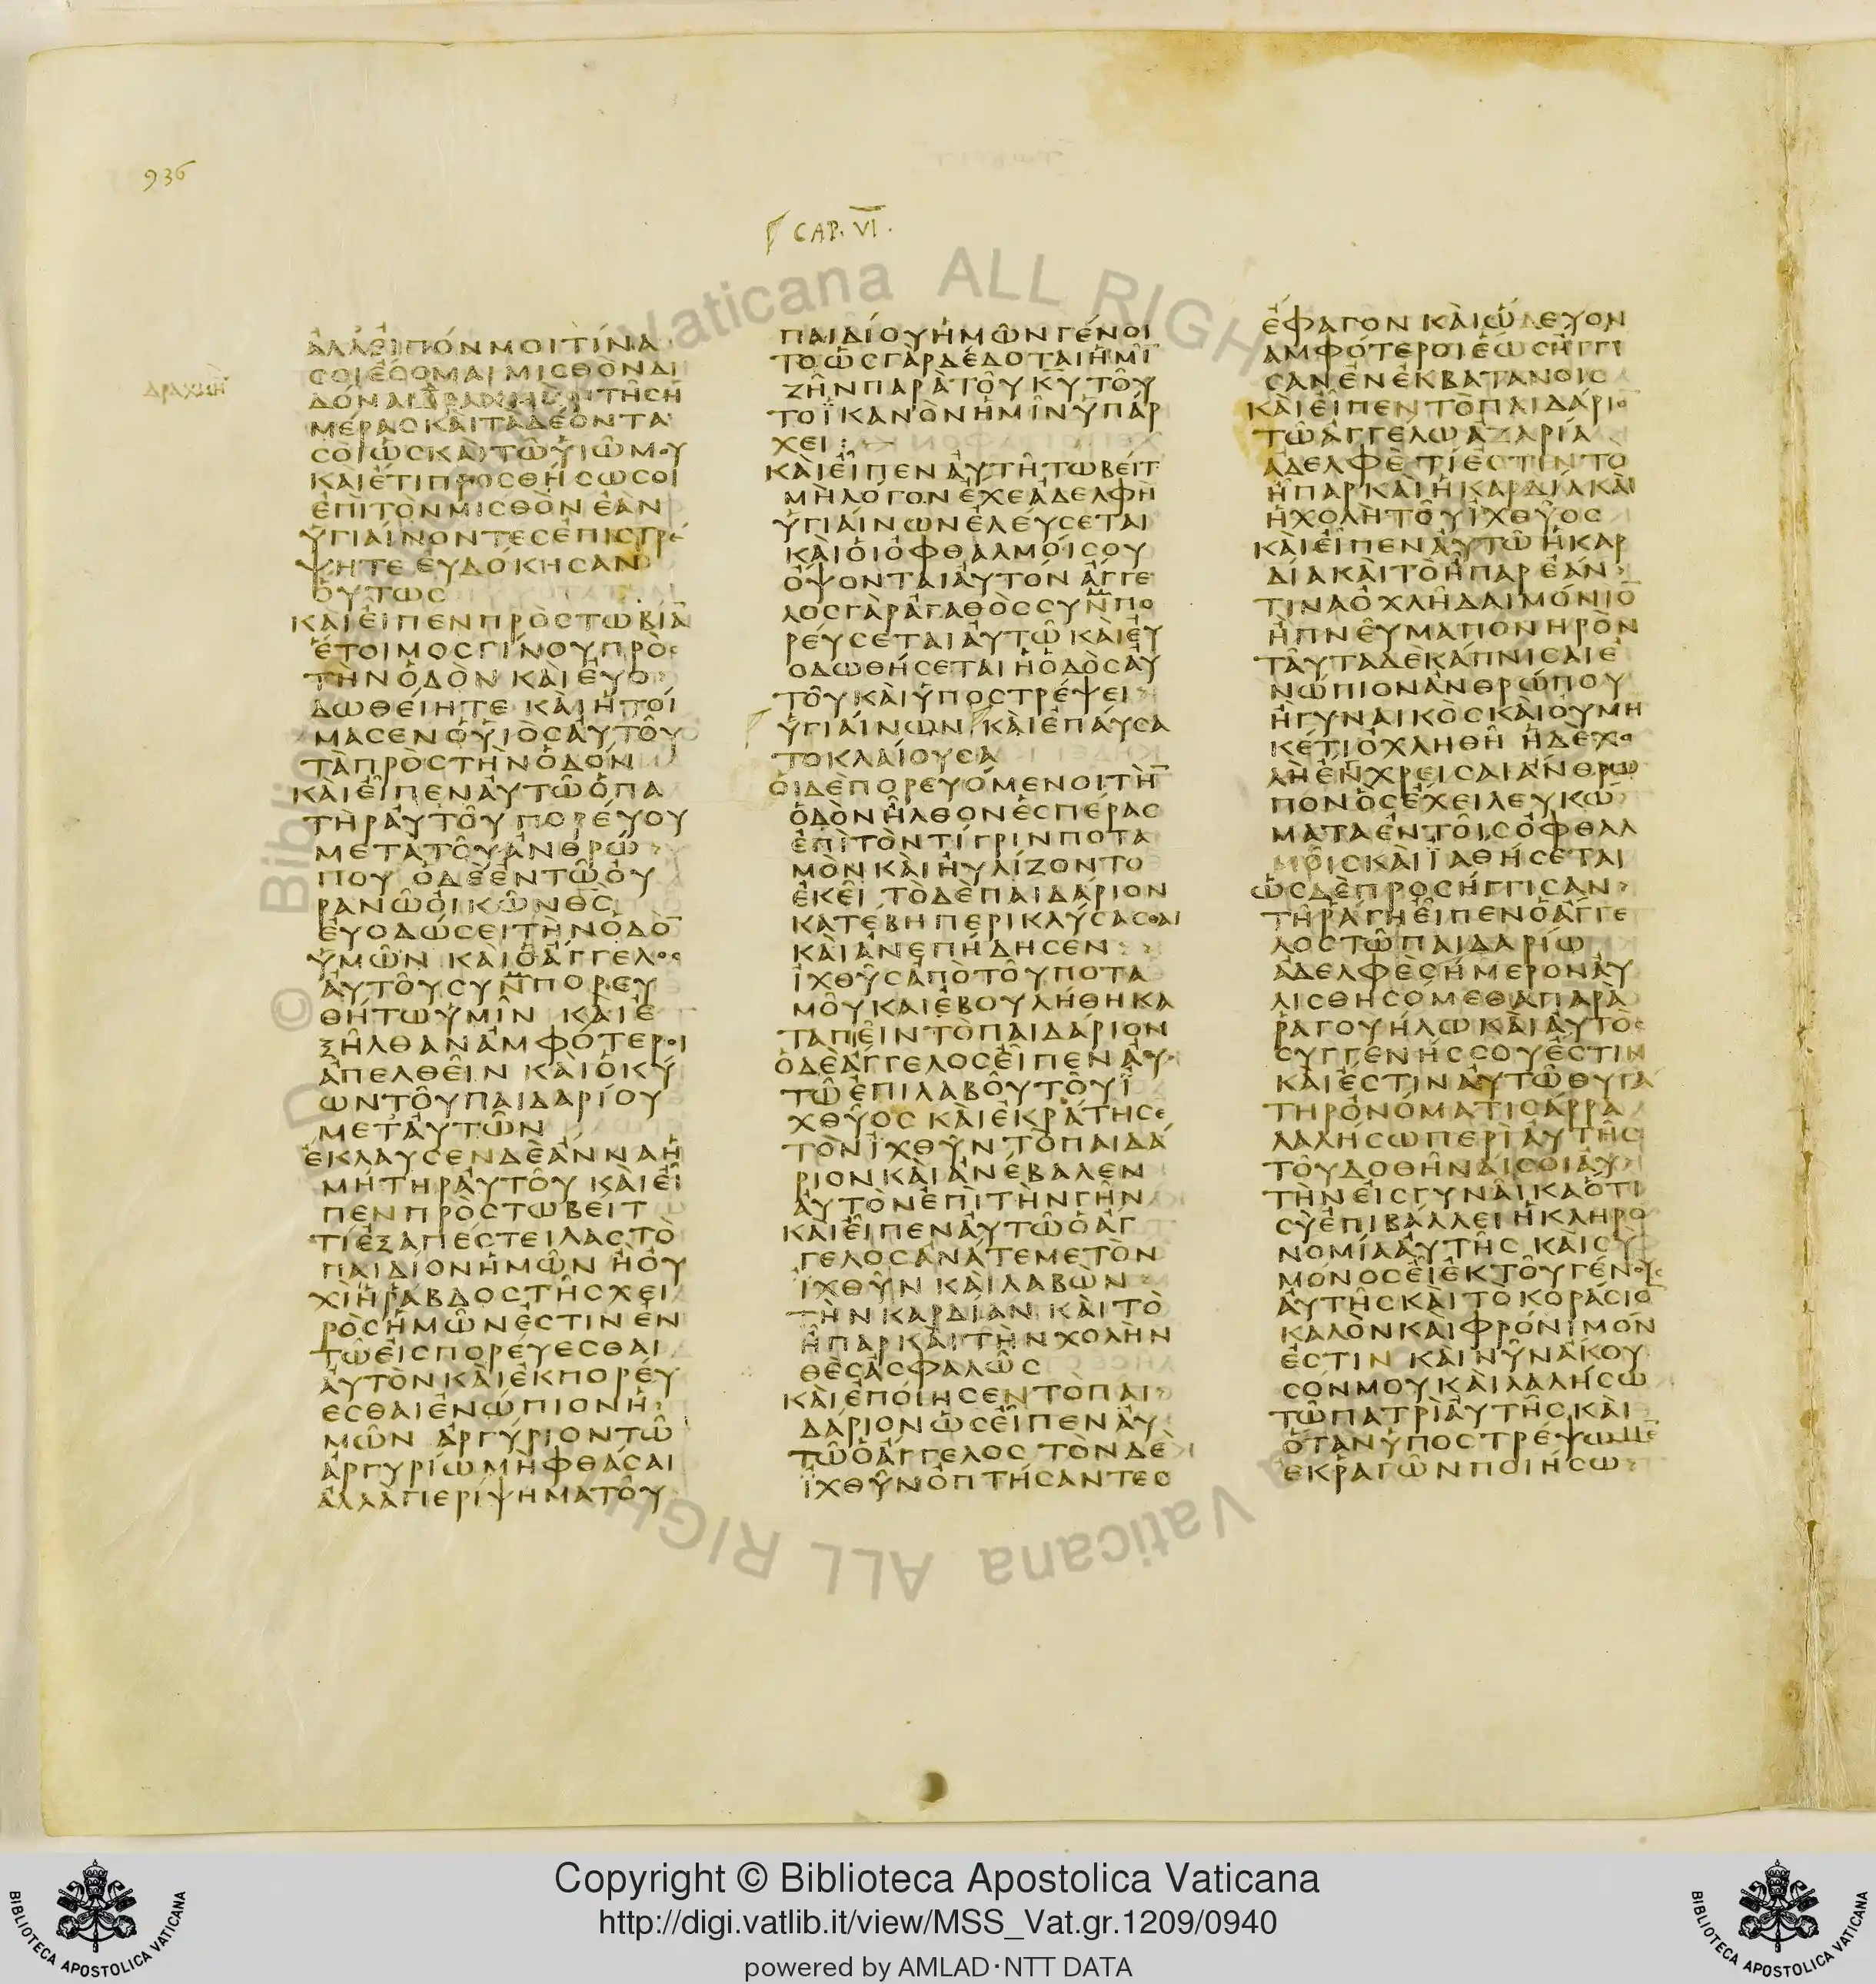 936
CAP. VI.
ΑΛΛΕΙΠΟΝΜΟΙΤΙΝΑ
ΣΟΙΕΣΟΜΑΙΜΙΣΘΟΝΔΙ
ΔΟΝΑΙΔΡΑΧΜΗΝΤΗΣΗ
ΜΕΡΑΣΚΑΙΤΑΔΕΟΝΤΑ
ΣΟΙΩΣΚΑΙΤΩΥΙΩΜΟΥ
ΚΑΙΕΤΙΠΡΟΣΘΗΣΩΣΟΙ
ΕΠΙΤΟΝΜΙΣΘΟΝΕΑΝ
ΥΓΙΑΙΝΟΝΤΕΣΕΠΙΣΤΡΕ
ΨΗΤΕ ΕΥΔΟΚΗΣΑΝ
ΟΥΤΩΣ
ΚΑΙΕΙΠΕΝΠΡΟΣΤΩΒΙΑΝ
ΕΤΟΙΜΟΣΓΙΝΟΥΠΡΟΣ
ΤΗΝΟΔΟΝ ΚΑΙΕΥΟ
ΔΩΘΕΙΗΤΕ ΚΑΙΗΤΟΙ
ΜΑΣΕΝΟΥΙΟΣΑΥΤΟΥ
ΤΑΠΡΟΣΤΗΝΟΔΟΝ
ΚΑΙΕΙΠΕΝΑΥΤΩΟΠΑ
ΤΗΡΑΥΤΟΥ ΠΟΡΕΥΟΥ
ΜΕΤΑΤΟΥΑΝΘΡΩ
ΠΟΥ ΟΔΕΕΝΤΩΟΥ
ΡΑΝΩΟΙΚΩΝΘΣ
ΕΥΟΔΩΣΕΙΤΗΝΟΔΟ̅
ΥΜΩΝ ΚΑΙΟΑΓΓΕΛΟΣ
ΑΥΤΟΥΣΥΝΠΟΡΕΥ
ΘΗΤΩΥΜΙΝ ΚΑΙΕ
ΞΗΛΘΑΝΑΜΦΟΤΕΡΟΙ
ΑΠΕΛΘΕΙΝ ΚΑΙΟΚΥ
ΩΝΤΟΥΠΑΙΔΑΡΙΟΥ
ΜΕΤΑΥΤΩΝ
ΕΚΛΑΥΣΕΝΔΕΑΝΝΑΗ
ΜΗΤΗΡΑΥΤΟΥ ΚΑΙΕΙ
ΠΕΝΠΡΟΣΤΩΒΕΙΤ
ΤΙΕΞΑΠΕΣΤΕΙΛΑΣΤΟ
ΠΑΙΔΙΟΝΗΜΩΝ ΗΟΥ
ΧΙΗΡΑΒΔΟΣΤΗΣΧΕΙ
ΡΟΣΗΜΩΝΕΣΤΙΝΕΝ
ΤΩΕΙΣΠΟΡΕΥΕΣΘΑΙ
ΑΥΤΟΝΚΑΙΕΚΠΟΡΕΥ
ΕΣΘΑΙΕΝΩΠΙΟΝΗ
ΜΩΝ ΑΡΓΥΡΙΟΝΤΩ
ΑΡΓΥΡΙΩΜΗΦΘΑΣΑΙ
ΑΛΛΑΠΕΡΙΨΗΜΑΤΟΥ
ΠΑΙΔΙΟΥΗΜΩΝΓΕΝΟΙ
ΤΟΩΣΓΑΡΔΕΔΟΤΑΙΗΜΙ̅
ΖΗΝΠΑΡΑΤΟΥΚ̅Υ̅ΤΟΥ
ΤΟΪΚΑΝΟΝΗΜΙΝΥΠΑΡ
ΧΕΙ :
ΚΑΙΕΙΠΕΝΑΥΤΗΤΩΒΕΙΤ
ΜΗΛΟΓΟΝΕΧΕΑΔΕΛΦΗ
ΥΓΙΑΙΝΩΝΕΛΕΥΣΕΤΑΙ
ΚΑΙΟΙΟΦΘΑΛΜΟΙΣΟΥ
ΟΨΟΝΤΑΙΑΥΤΟΝΑΓΓΕ
ΛΟΣΓΑΡΑΓΑΘΟΣΣΥΝΠΟ
ΡΕΥΣΕΤΑΙΑΥΤΩ ΚΑΙΕΥ
ΟΔΩΘΗΣΕΤΑΙΗΟΔΟΣΑΥ
ΤΟΥΚΑΙΥΠΟΣΤΡΕΨΕΙ
ΥΓΙΑΙΝΩΝ ΚΑΙΕΠΑΥΣΑ
ΤΟΚΛΑΙΟΥΣΑ
ΟΙΔΕΠΟΡΕΥΟΜΕΝΟΙΤΗ̅
ΟΔΟΝΗΛΘΟΝΕΣΠΕΡΑΣ
ΕΠΙΤΟΝΤΙΓΡΙΝΠΟΤΑ
ΜΟΝΚΑΙΗΥΛΙΖΟΝΤΟ
ΕΚΕΙ ΤΟΔΕΠΑΙΔΑΡΙΟΝ
ΚΑΤΕΒΗΠΕΡΙΚΛΥΣΑΣΘΑΙ
ΚΑΙΑΝΕΠΗΔΗΣΕΝ
ΙΧΘΥΣΑΠΟΤΟΥΠΟΤΑ
ΜΟΥΚΑΙΕΒΟΥΛΗΘΗΚΑ
ΤΑΠΙΕΙΝΤΟΠΑΙΔΑΡΙΟΝ
ΟΔΕΑΓΓΕΛΟΣΕΙΠΕΝΑΥ
ΤΩΕΠΙΛΑΒΟΥΤΟΥΪ
ΧΘΥΟΣ ΚΑΙΕΚΡΑΤΗΣΕ
ΤΟΝΙΧΘΥΝΤΟΠΑΙΔΑ
ΡΙΟΝΚΑΙΑΝΕΒΑΛΕΝ
ΑΥΤΟΝΕΠΙΤΗΝΓΗΝ
ΚΑΙΕΙΠΕΝΑΥΤΩΟΑΓ
ΓΕΛΟΣΑΝΑΤΕΜΕΤΟΝ
ΙΧΘΥΝ ΚΑΙΛΑΒΩΝ
ΤΗΝΚΑΡΔΙΑΝ ΚΑΙΤΟ
ΗΠΑΡΚΑΙΤΗΝΧΟΛΗΝ
ΘΕΣΑΣΦΑΛΩΣ
ΚΑΙΕΠΟΙΗΣΕΝΤΟΠΑΙ
ΔΑΡΙΟΝΩΣΕΙΠΕΝΑΥ
ΤΩΟΑΓΓΕΛΟΣ ΤΟΝΔΕ
ΙΧΘΥΝΟΠΤΗΣΑΝΤΕΣ
ΕΦΑΓΟΝ ΚΑΙΩΔΕΥΟΝ
ΑΜΦΟΤΕΡΟΙΕΩΣΗΓΓΙ
ΣΑΝΕΝΕΚΒΑΤΑΝΟΙΣ
ΚΑΙΕΙΠΕΝΤΟΠΑΙΔΑΡΙΟ
ΤΩΑΓΓΕΛΩΑΖΑΡΙΑ
ΑΔΕΛΦΕ ΤΙΕΣΤΙΝΤΟ
ΗΠΑΡΚΑΙΗΚΑΡΔΙΑΚΑΙ
ΗΧΟΛΗΤΟΥΙΧΘΥΟΣ
ΚΑΙΕΙΠΕΝΑΥΤΩΗΚΑΡ
ΔΙΑΚΑΙΤΟΗΠΑΡΕΑΝ
ΤΙΝΑΟΧΛΗΔΑΙΜΟΝΙΟ̅
ΗΠΝΕΥΜΑΠΟΝΗΡΟΝ
ΤΑΥΤΑΔΕΚΑΠΝΙΣΑΙΕ
ΝΩΠΙΟΝΑΝΘΡΩΠΟΥ
ΗΓΥΝΑΙΚΟΣΚΑΙΟΥΜΗ
ΚΕΤΙΟΧΛΗΘΗ ΗΔΕΧΟ
ΛΗΕΝΧΡΕΙΣΑΙΑΝΘΡΩ
ΠΟΝΟΣΕΧΕΙΛΕΥΚΩ
ΜΑΤΑΕΝΤΟΙΣΟΦΘΑΛ
ΜΟΙΣΚΑΙΪΑΘΗΣΕΤΑΙ
ΩΣΔΕΠΡΟΣΗΓΓΙΣΑΝ
ΤΗΡΑΓΗΕΙΠΕΝΟΑΓΓΕ
ΛΟΣΤΩΠΑΙΔΑΡΙΩ
ΑΔΕΛΦΕΣΗΜΕΡΟΝΑΥ
ΛΙΣΘΗΣΟΜΕΘΑΠΑΡΑ
ΡΑΓΟΥΗΛΩΚΑΙΑΥΤΟΣ
ΣΥΓΓΕΝΗΣΣΟΥΕΣΤΙΝ
ΚΑΙΕΣΤΙΝΑΥΤΩΘΥΓΑ
ΤΗΡΟΝΟΜΑΤΙΣΑΡΡΑ
ΛΑΛΗΣΩΠΕΡΙΑΥΤΗΣ
ΤΟΥΔΟΘΗΝΑΙΣΟΙΑΥ
ΤΗΝΕΙΣΓΥΝΑΙΚΑΟΤΙ
ΣΥΕΠΙΒΑΛΛΕΙΗΚΛΗΡΟ
ΝΟΜΙΑΑΥΤΗΣ ΚΑΙΣΥ
ΜΟΝΟΣΕΙΕΚΤΟΥΓΕΝΟΥΣ
ΑΥΤΗΣΚΑΙΤΟΚΟΡΑΣΙΟ̅
ΚΑΛΟΝΚΑΙΦΡΟΝΙΜΟΝ
ΕΣΤΙΝ ΚΑΙΝΥΝΑΚΟΥ
ΣΟΝΜΟΥΚΑΙΛΑΛΗΣΩ
ΤΩΠΑΤΡΙΑΥΤΗΣΚΑΙ
ΟΤΑΝΥΠΟΣΤΡΕΨΩΜΕ̅
ΕΚΡΑΓΩΝΠΟΙΗΣΩ
Copyright © Biblioteca Apostolica Vaticana
http://digi.vatlib.it/view/MSS_Vat.gr.1209/0940
powered by AMLAD·NTT DATA
BIBLIOTECA APOSTOLICA VATICANA
BIBLIOTECA APOSTOLICA VATICANA